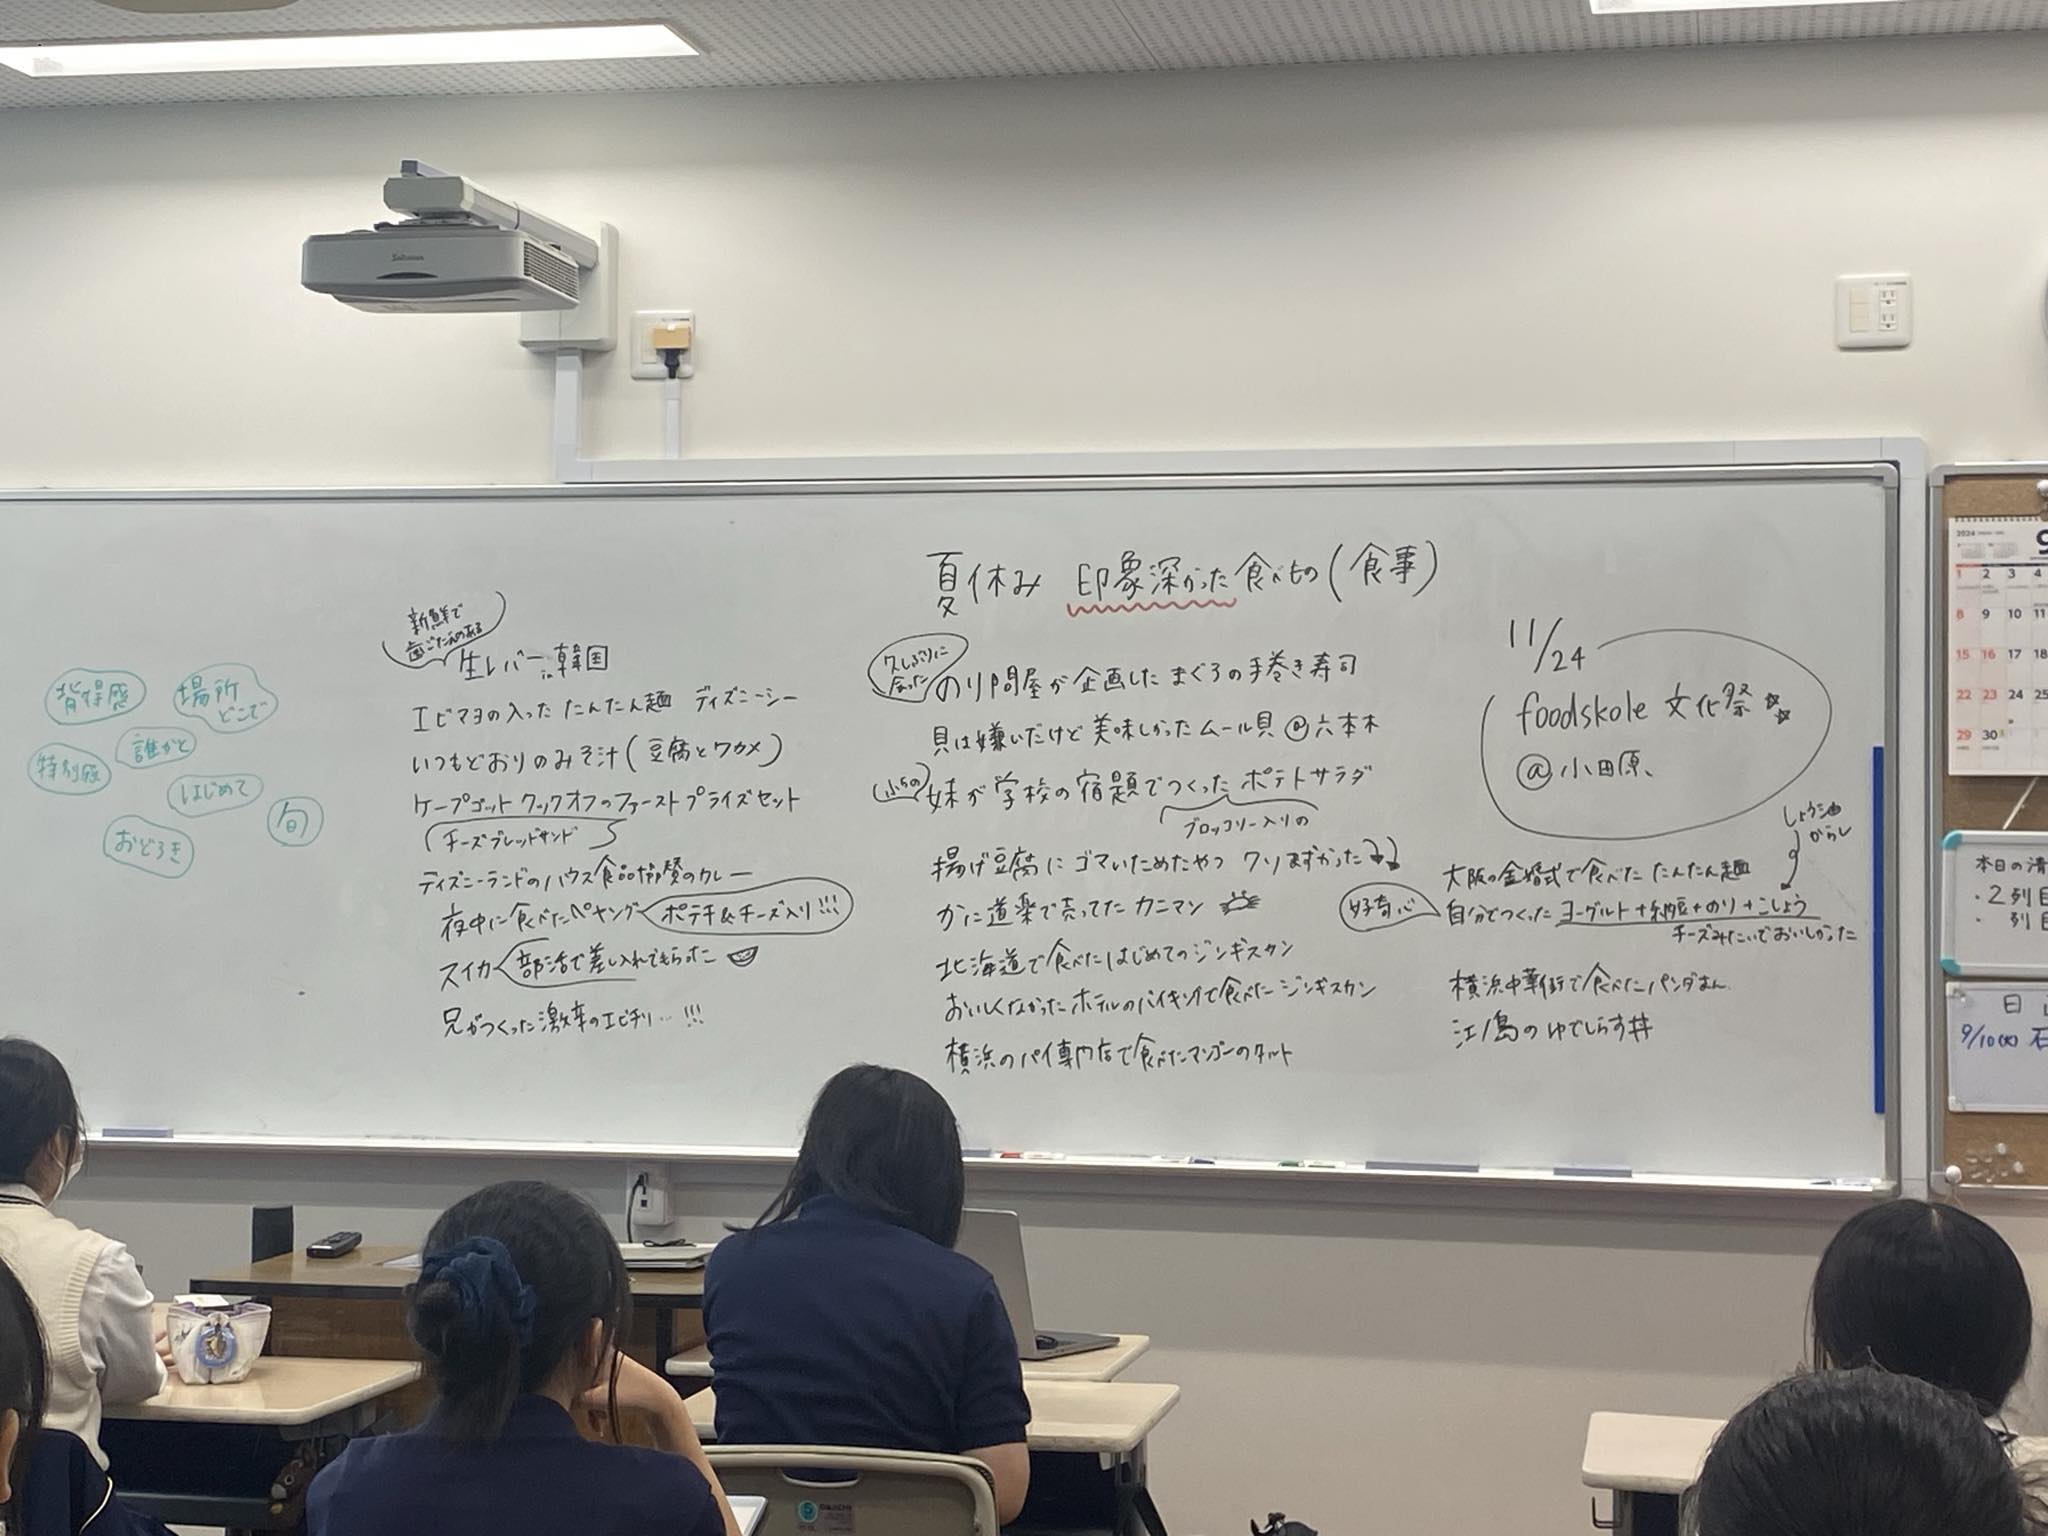 夏休み 印象深かった食べもの(食事)
久しぶりに
会った
のり問屋が企画したまぐろの手巻き寿司
貝は嫌いだけど美味しかったムール貝@六本木
妹が学校の宿題でつくったポテトサラダ
ブロッコリー入りの
揚げ豆腐にゴマいためたやつ クソまずかった
かに道楽で売ってたカニマン
北海道で食べたはじめてのジンギスカン
おいしくなかったホテルのバイキングで食べたジンギスカン
横浜のパイ専門店で食べたマンゴーのタルト
11/24
foodskole 文化祭
@小田原、
しょう油
からし
大阪の金婚式で食べたたんたん麺
好奇心
自分でつくったヨーグルト+納豆+のり+こしょう
チーズみたいでおいしかった
横浜中華街で食べたパンダまん
江ノ島のゆでしらす丼
新鮮で
歯ごたえのある
生レバー in 韓国
エビマヨの入ったたんたん麺 ディズニーシー
いつもどおりのみそ汁(豆腐とワカメ)
ケープコットクックオフのファーストプライズセット
チーズブレッドサンド
ディズニーランドのハウス食品協賛のカレー
夜中に食べたペヤング ポテチ&チーズ入り!!!
スイカ 部活で差し入れでもらった
兄がつくった激辛のエビチリ…!!!
背得感
場所
どこで
誰かと
特別感
はじめて
旬
おどろき
2024
9
1 2 3 4
8 9 10 11
15 16 17 18
22 23 24 25
29 30
本日の清
・2列目
・ 列目
日
9/10(火) 石